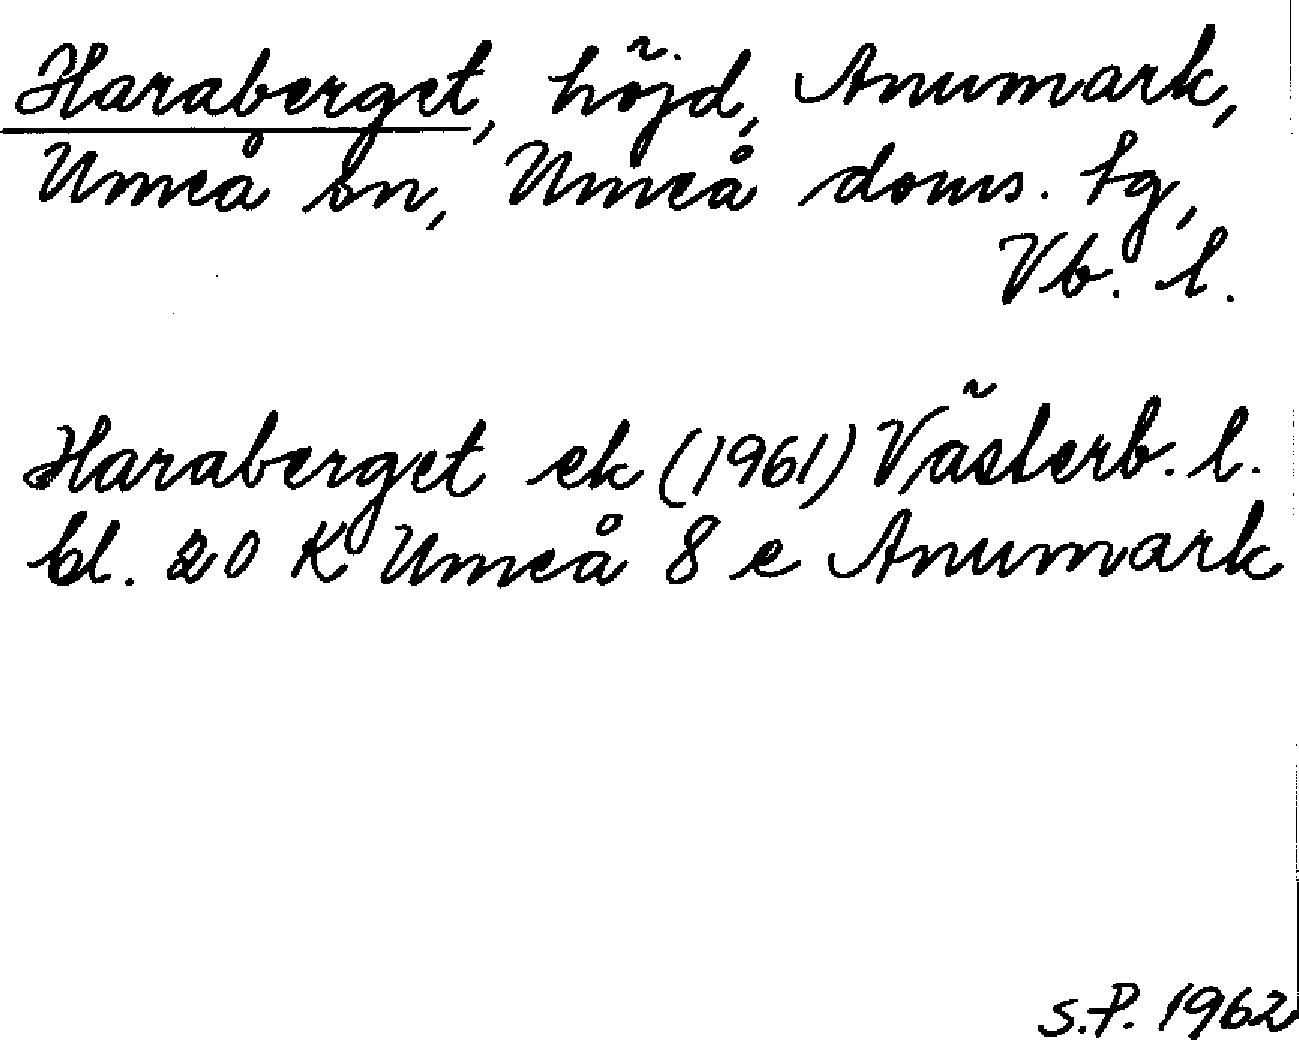 Haraberget, höjd, Anumark,
Umeå sn, Umeå doms. tg,
Vb. l.
Haraberget ek (1961) Västerb. l.
bl. 20 K Umeå 8 e Anumark
S.P. 1962